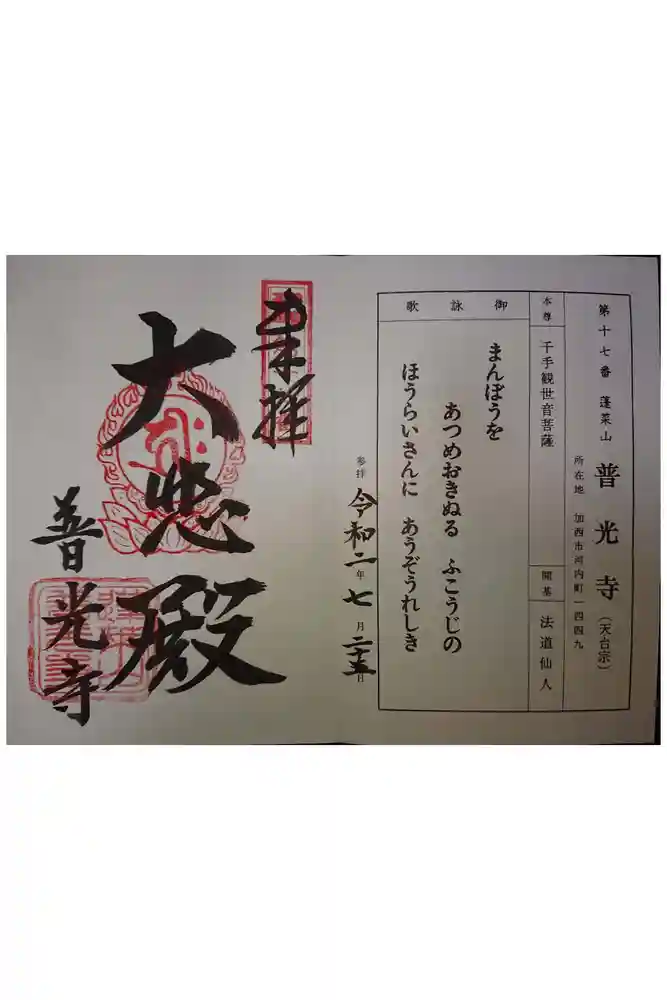 第十七番 蓬莱山 普光寺 (天台宗)
所在地 加西市河内町一四四九
本尊 千手観世音菩薩 開基 法道仙人
御詠歌
まんぼうを
あつめおきぬる ふこうじの
ほうらいさんに あうぞうれしき
参拝 令和二年七月二十五日
奉拝
大悲殿
普光寺